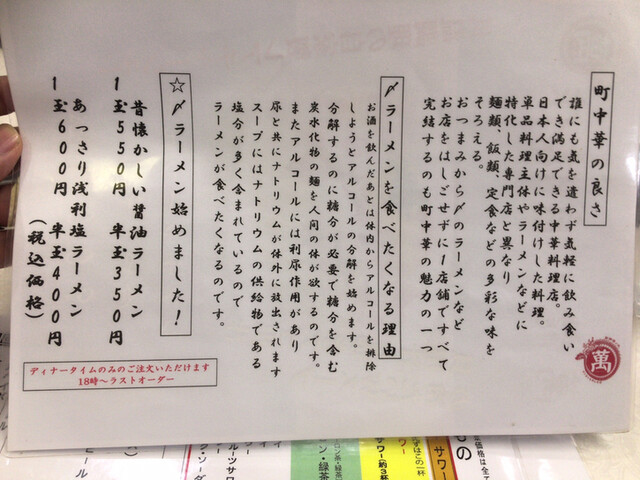 町中華の良さ
誰にも気を遣わず気軽に飲み食い
でき満足できる中華料理店。
日本人向けに味付けした料理。
単品料理主体やラーメンなどに
特化した専門店と異なり
麺類、飯類、定食などの多彩な味を
そろえる。
おつまみから〆のラーメンなど
お店をはしごせずに1店舗ですべて
完結するのも町中華の魅力の一つ
〆ラーメンを食べたくなる理由
お酒を飲んだあとは体内からアルコールを排除
しようとアルコールの分解を始めます。
分解するのに糖分が必要で糖分を含む
炭水化物の麺を人間の体が欲するのです。
またアルコールには利尿作用があり
尿と共にナトリウムが体外に放出されます
スープにはナトリウムの供給物である
塩分が多く含まれているので
ラーメンが食べたくなるのです。
☆〆ラーメン始めました!
昔懐かしい醤油ラーメン
1玉550円 半玉350円
あっさり浅利塩ラーメン
1玉600円 半玉400円
(税込価格)
ディナータイムのみのご注文いただけます
18時~ラストオーダー
萬